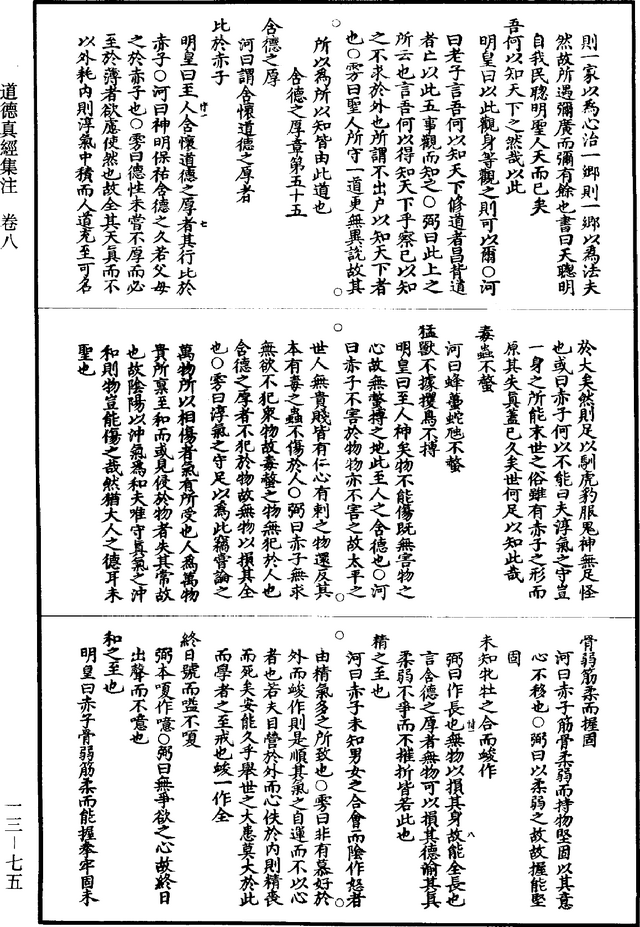 則一家以為心治一鄉則一鄉以為法夫
然故所遇彌廣而彌有餘也書曰天聰明
自我民聰明聖人天而已矣
吾何以知天下之然哉以此
明皇曰以此觀身等觀之則可以爾○河
曰老子言吾何以知天下修道者昌背道
者亡以此五事觀而知之○弼曰此上之
所云也言吾何以得知天下乎察己以知
之不求於外也所謂不出户以知天下者
也○雱曰聖人所守一道更無異說故其
所以為所以知皆由此道也
含德之厚章第五十五
含德之厚
河曰謂含懷道德之厚者
比於赤子
明皇曰至人含懷道德之厚者其行比於
赤子○河曰神明保祐含德之久若父母
之於赤子也○雱曰德性未嘗不厚而必
至於薄者欲慮使然也故全其天真而不
以外耗內則淳氣中積而人道充至可名
於大矣然則足以馴虎豹服鬼神無足怪
也或曰赤子何以不能曰夫淳氣之守豈
一身之所能末世之俗雖有赤子之形而
原其失真蓋已久矣世何足以知此哉
毒蟲不螫
河曰蜂蠆蛇虺不螫
猛獸不據攫鳥不搏
明皇曰至人神矣物不能傷既無害物之
心故無螫搏之地此至人之含德也○河
曰赤子不害於物物亦不害之故太平之
世人無貴賤皆有仁心有刺之物還反其
本有毒之蟲不傷於人○弼曰赤子無求
無欲不犯衆物故毒螫之物無犯於人也
含德之厚者不犯於物故無物以損其全
也○雱曰淳氣之守足以為此竊嘗論之
萬物所以相傷者氣有所受也人為萬物
貴所禀至和而或見侵於物者失其常故
也故陰陽以沖氣為和夫唯守真氣之沖
和則物豈能傷之哉然猶大人之德耳未
聖也
骨弱筋柔而握固
河曰赤子筋骨柔弱而持物堅固以其意
心不移也○弼曰以柔弱之故故握能堅
固
未知牝牡之合而峻作
弼曰作長也無物以損其身故能全長也
言含德之厚者無物可以損其德渝其真
柔弱不爭而不摧折皆若此也
精之至也
河曰赤子未知男女之合會而陰作怒者
由精氣多之所致也○雱曰非有慕好於
外而峻作則是順其氣之自運而不以心
者也若夫目營於外而心佚於內則精喪
而死矣安能久乎舉世之大患莫大於此
而學者之至戒也峻一作全
終日號而嗌不嗄
弼本嗄作噫○弼曰無爭欲之心故終日
出聲而不噫也
和之至也
明皇曰赤子骨弱筋柔而能握拳牢固未
道德真經集注 卷八
一三—七五